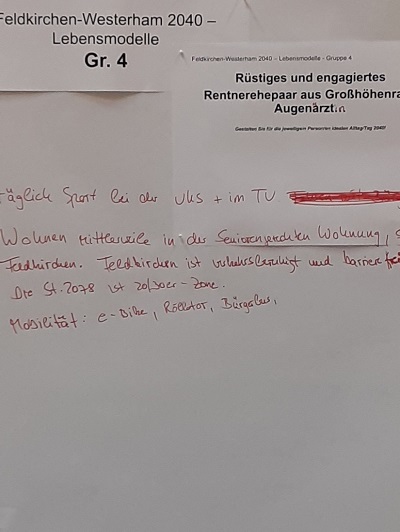 Feldkirchen-Westerham 2040 –
Lebensmodelle
Gr. 4
Feldkirchen-Westerham 2040 – Lebensmodelle - Gruppe 4
Rüstiges und engagiertes
Rentnerehepaar aus Großhöhenra
Augenärzt
Gestalten Sie für die jeweiligen Personen idealen Alltag/Tag 2040!
täglich Sport bei der VHS + im TV
Wohnen mittlerweile in der Seniorengerechten Wohnung,
Feldkirchen. Feldkirchen ist verkehrsberuhigt und barrierefrei
Die St. 2078 ist 20/30er-Zone.
Mobilität: e-Bike, Rollator, Bürgerbus,